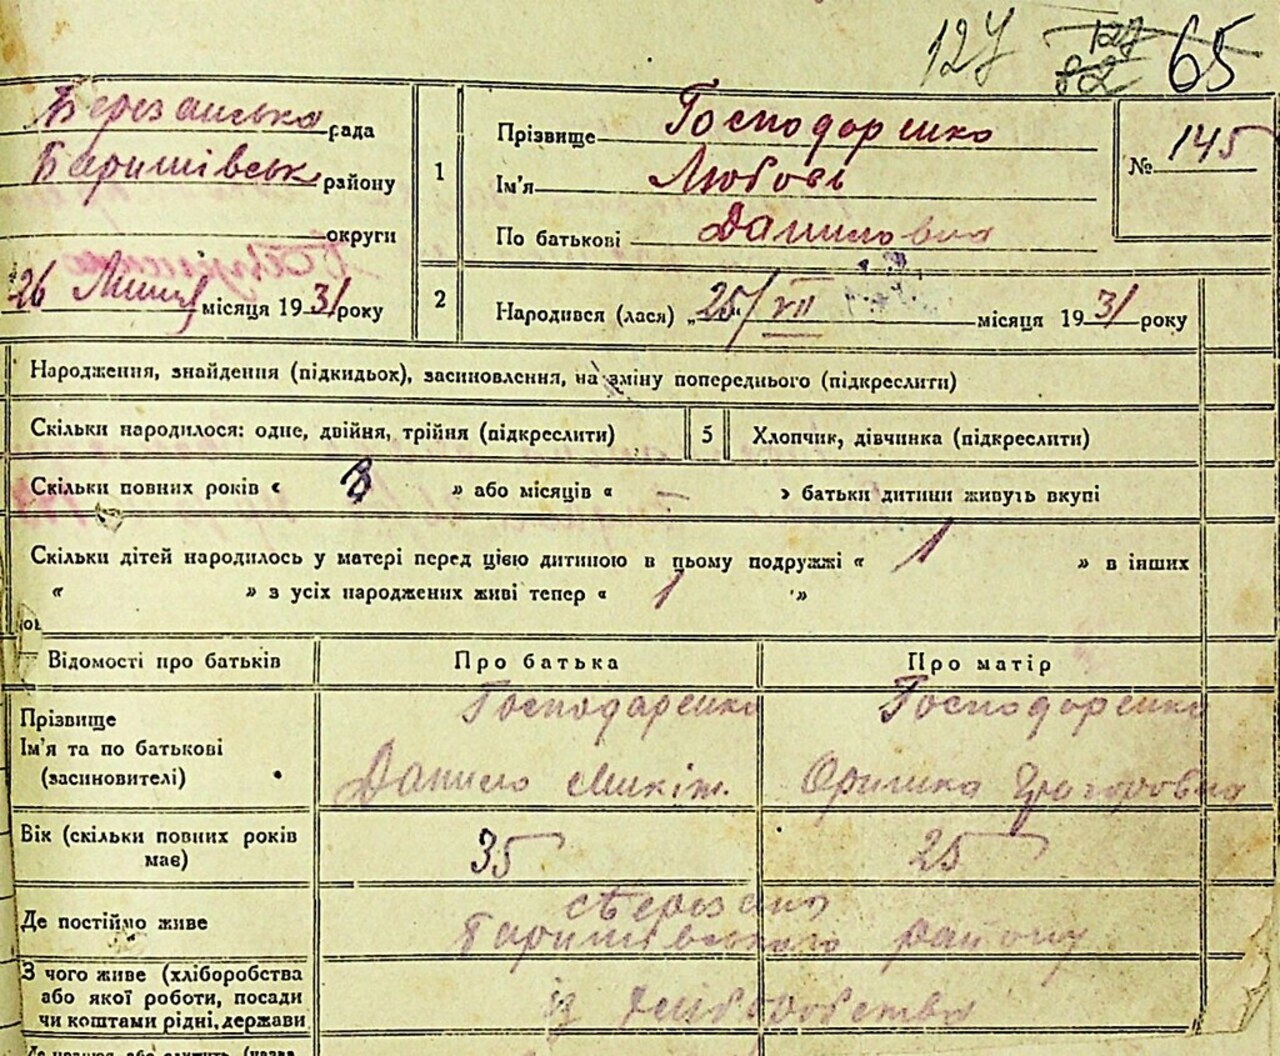 127 127 82 65
Березанська рада
Баришівськ району
округи
26 Липня місяця 1931 року
1
Прізвище Господаренко
Ім'я Любовь
По батькові Даниловна
№ 145
2
Народився (лася) „25/VII“ місяця 1931 року
Народження, знайдення (підкидьок), засиновлення, на зміну попереднього (підкреслити)
Скільки народилося: одне, двійня, трійня (підкреслити) 5 Хлопчик, дівчинка (підкреслити)
Скільки повних років « 3 » або місяців « — » батьки дитини живуть вкупі
Скільки дітей народилось у матері перед цією дитиною в цьому подружжі « 1 » в інших
« » з усіх народжених живі тепер « 1 »
Відомості про батьків Про батька Про матір
Прізвище Господаренко Господаренко
Ім'я та по батькові Данило Микіт. Оришка Григоровна
(засиновителі)
Вік (скільки повних років 35 25
має)
с Березань
Де постійно живе Баришівського району
З чого живе (хліборобства
або якої роботи, посади із хліборобства
чи коштами рідні, держави